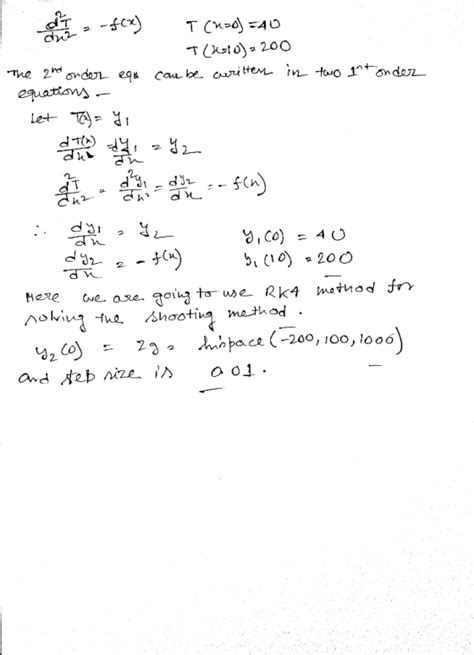 d²T/dx² = -f(x)   T(x=0)=40
T(x=10)=200
The 2nd order eqn can be written in two 1st order
equations —
Let T(x) = y₁
dT(x)/dx = dy₁/dx = y₂
d²T/dx² = d²y₁/dx² = dy₂/dx = -f(x)
∴ dy₁/dx = y₂   y₁(0) = 40
dy₂/dx = -f(x)   y₁(10) = 200
Here we are going to use RK4 method for
solving the shooting method.
y₂(0) = zg = linspace(-200, 100, 1000)
and step size is 0.01.